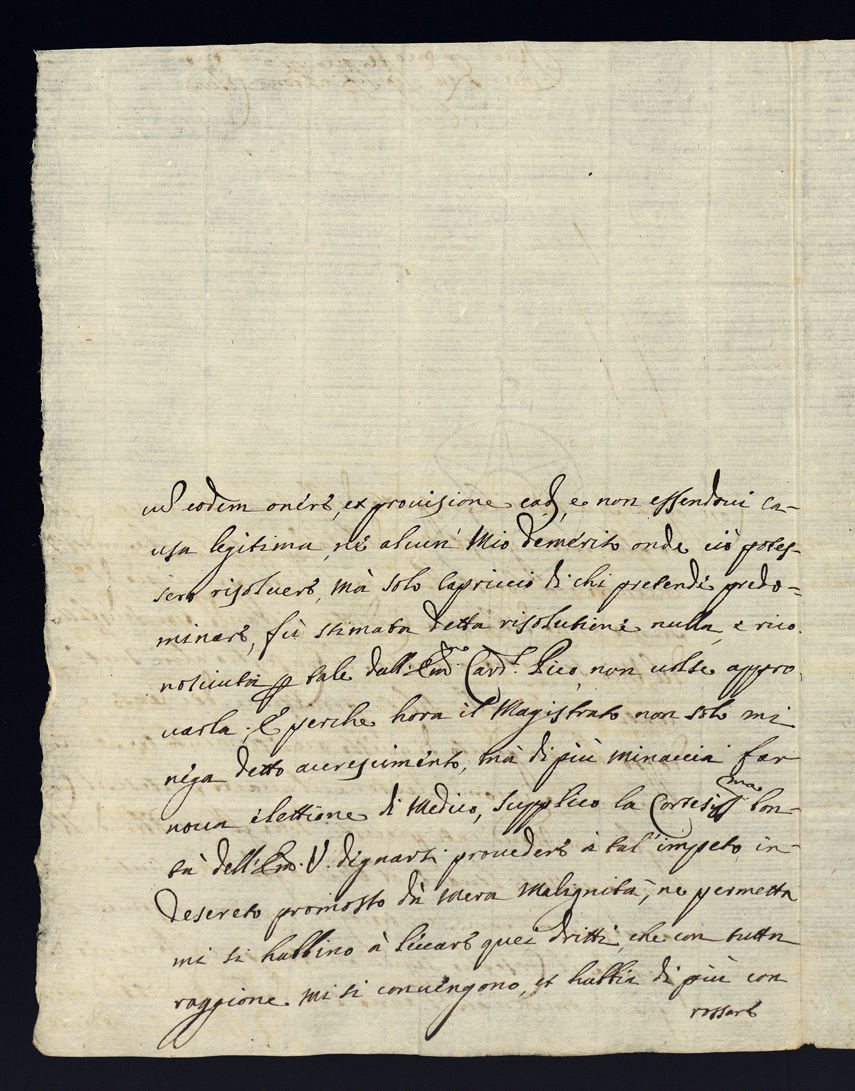 cũ eodem onere, et provisione ead., e non essendovi ca-
usa legitima, nè alcun' mio demerito onde ciò potes-
sero risolvere, mà solo capriccio di chi pretende predo-
minare, fù stimata detta risolutione nulla, e rico
nosciuta p tale dall'Em.mo Card.l Pico, non volse appro
varla. E perche hora il Magistrato non solo mi
nega detto accrescimento, mà di più minaccia far
nova elettione di Medico, supplico la Cortesiss.ma Bon-
tà dell'Em. V. degnarsi provedere à tal' impeto in-
descreto promosso dà mera malignità, ne permetta
mi si habbino à leccare quei dritti, che con tutta
raggione mi si convengono, et habbia di più con
rossore